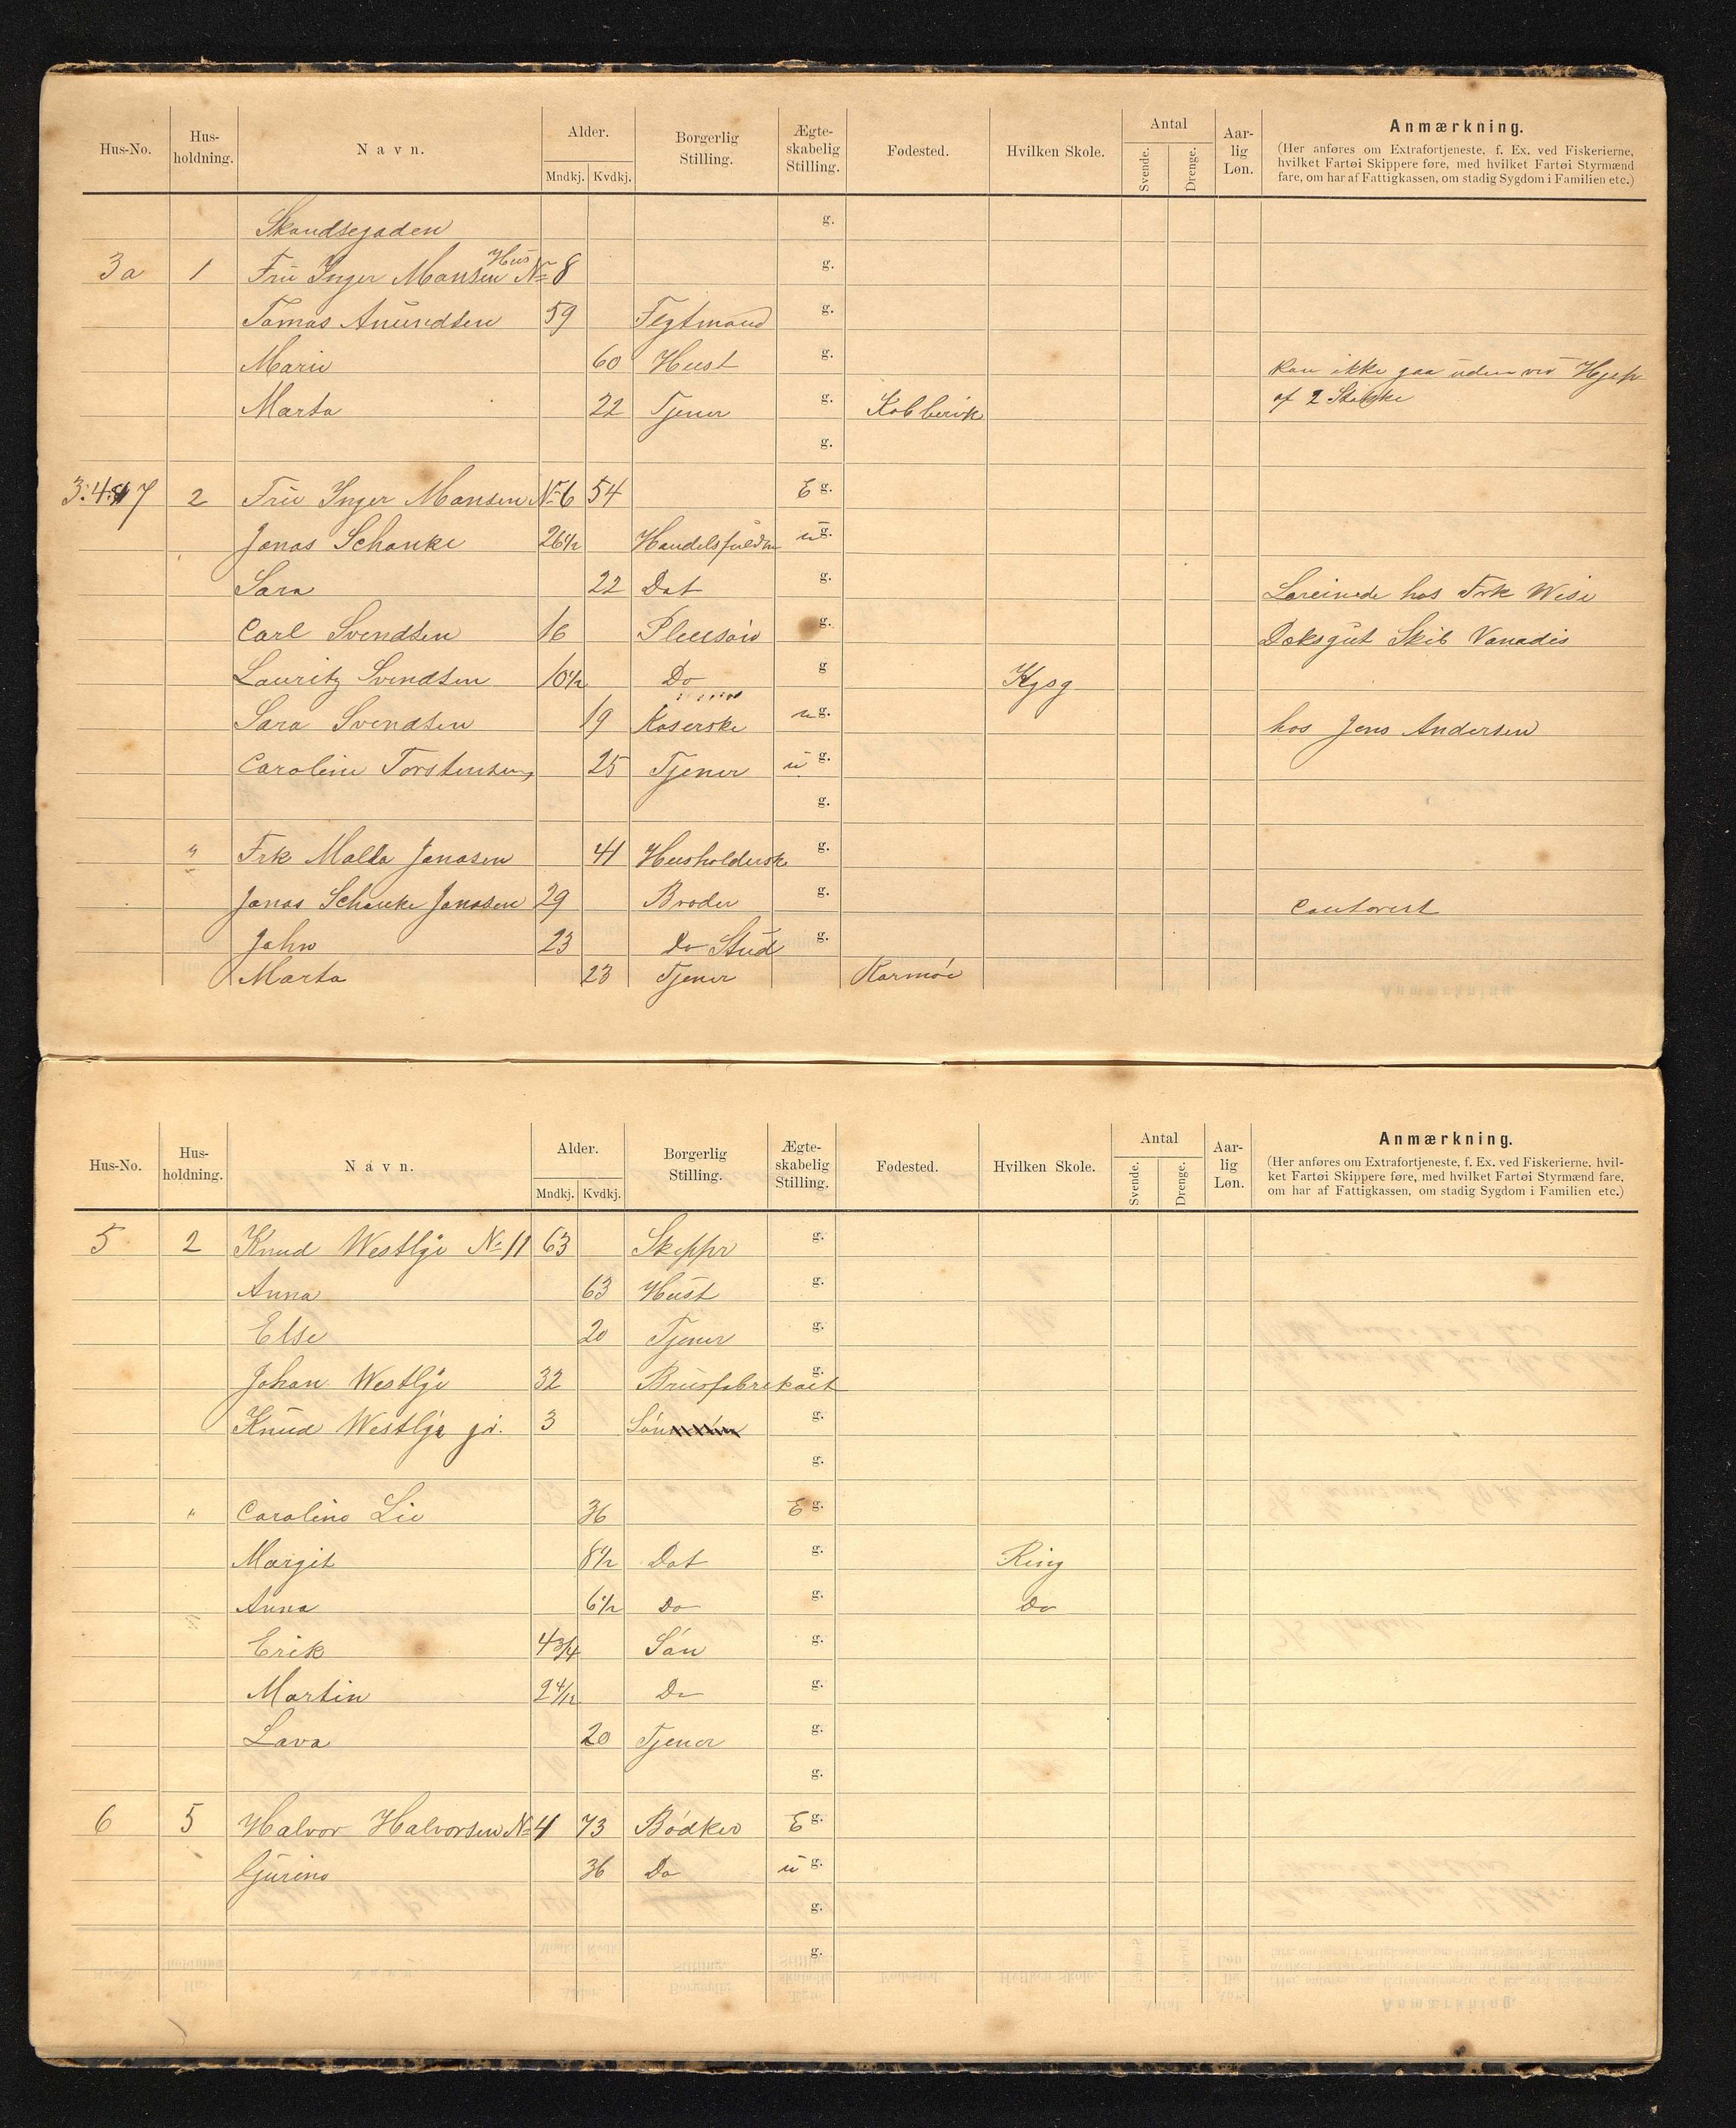 Hus-No. Hus-holdning. Navn. Alder. Mndkj. Kvdkj. Borgerlig Stilling. Ægte-skabelig Stilling. Fødested. Hvilken Skole. Antal Svende. Drenge. Aar-lig Løn. Anmærkning.
(Her anføres om Extrafortjeneste, f. Ex. ved Fiskerierne,
hvilket Fartøi Skippere føre, med hvilket Fartøi Styrmænd
fare, om har af Fattigkassen, om stadig Sygdom i Familien etc.)
Skandsegaden g.
3a 1 Fru Inger Monsen Hus No 8 g.
Tomas Amundsen 59 Fegtmand g.
Marie 60 Hust g. Kan ikke gaa uden ved Hjelp
Marta 22 Tjener g. Kobbervik af 2 Stokke
g.
3.4. 7 2 Fru Inger Monsen No 6 54 E g.
Jonas Schanke 26½ Handelsfuldm u g.
Sara 22 Dat g. Lærerinde hos Frk Wise
Carl Svendsen 16 Pleiesøn g. Dæksgut Skib Vanadis
Lauritz Svendsen 10½ Do g Kgsg
Sara Svendsen 19 Kaserske u g. hos Jens Andersen
Caroline Torstensen 25 Tjener u g.
g.
" Frk Malla Jonasen 41 Husholdersk g.
Jonas Schanke Jonasen 29 Broder g. Contorist
John 23 Do Stud g.
Marta 23 Tjener Karmøe
Hus-No. Hus-holdning. Navn. Alder. Mndkj. Kvdkj. Borgerlig Stilling. Ægte-skabelig Stilling. Fødested. Hvilken Skole. Antal Svende. Drenge. Aar-lig Løn. Anmærkning.
(Her anføres om Extrafortjeneste, f. Ex. ved Fiskerierne, hvil-
ket Fartøi Skippere føre, med hvilket Fartøi Styrmænd fare,
om har af Fattigkassen, om stadig Sygdom i Familien etc.)
5 2 Knud Westlye No 11 63 Skipper g.
Anna 63 Hust g.
Else 20 Tjener g.
Johan Westlye 32 Brusfabrikant g.
Knud Westlye jr. 3 Søn g.
g.
" Caroline Lie 36 E g.
Margit 8½ Dat g. Ring
Anna 6½ Do g. Do
Erik 4¾ Søn g.
Martin 2 4/12 Do g.
Lava 20 Tjener g.
g.
6 5 Halvor Halvorsen No 4 73 Bødker E g.
Gurine 36 Do u g.
g.
g.